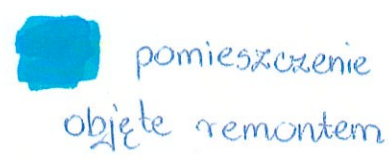 pomieszczenie
objęte remontem